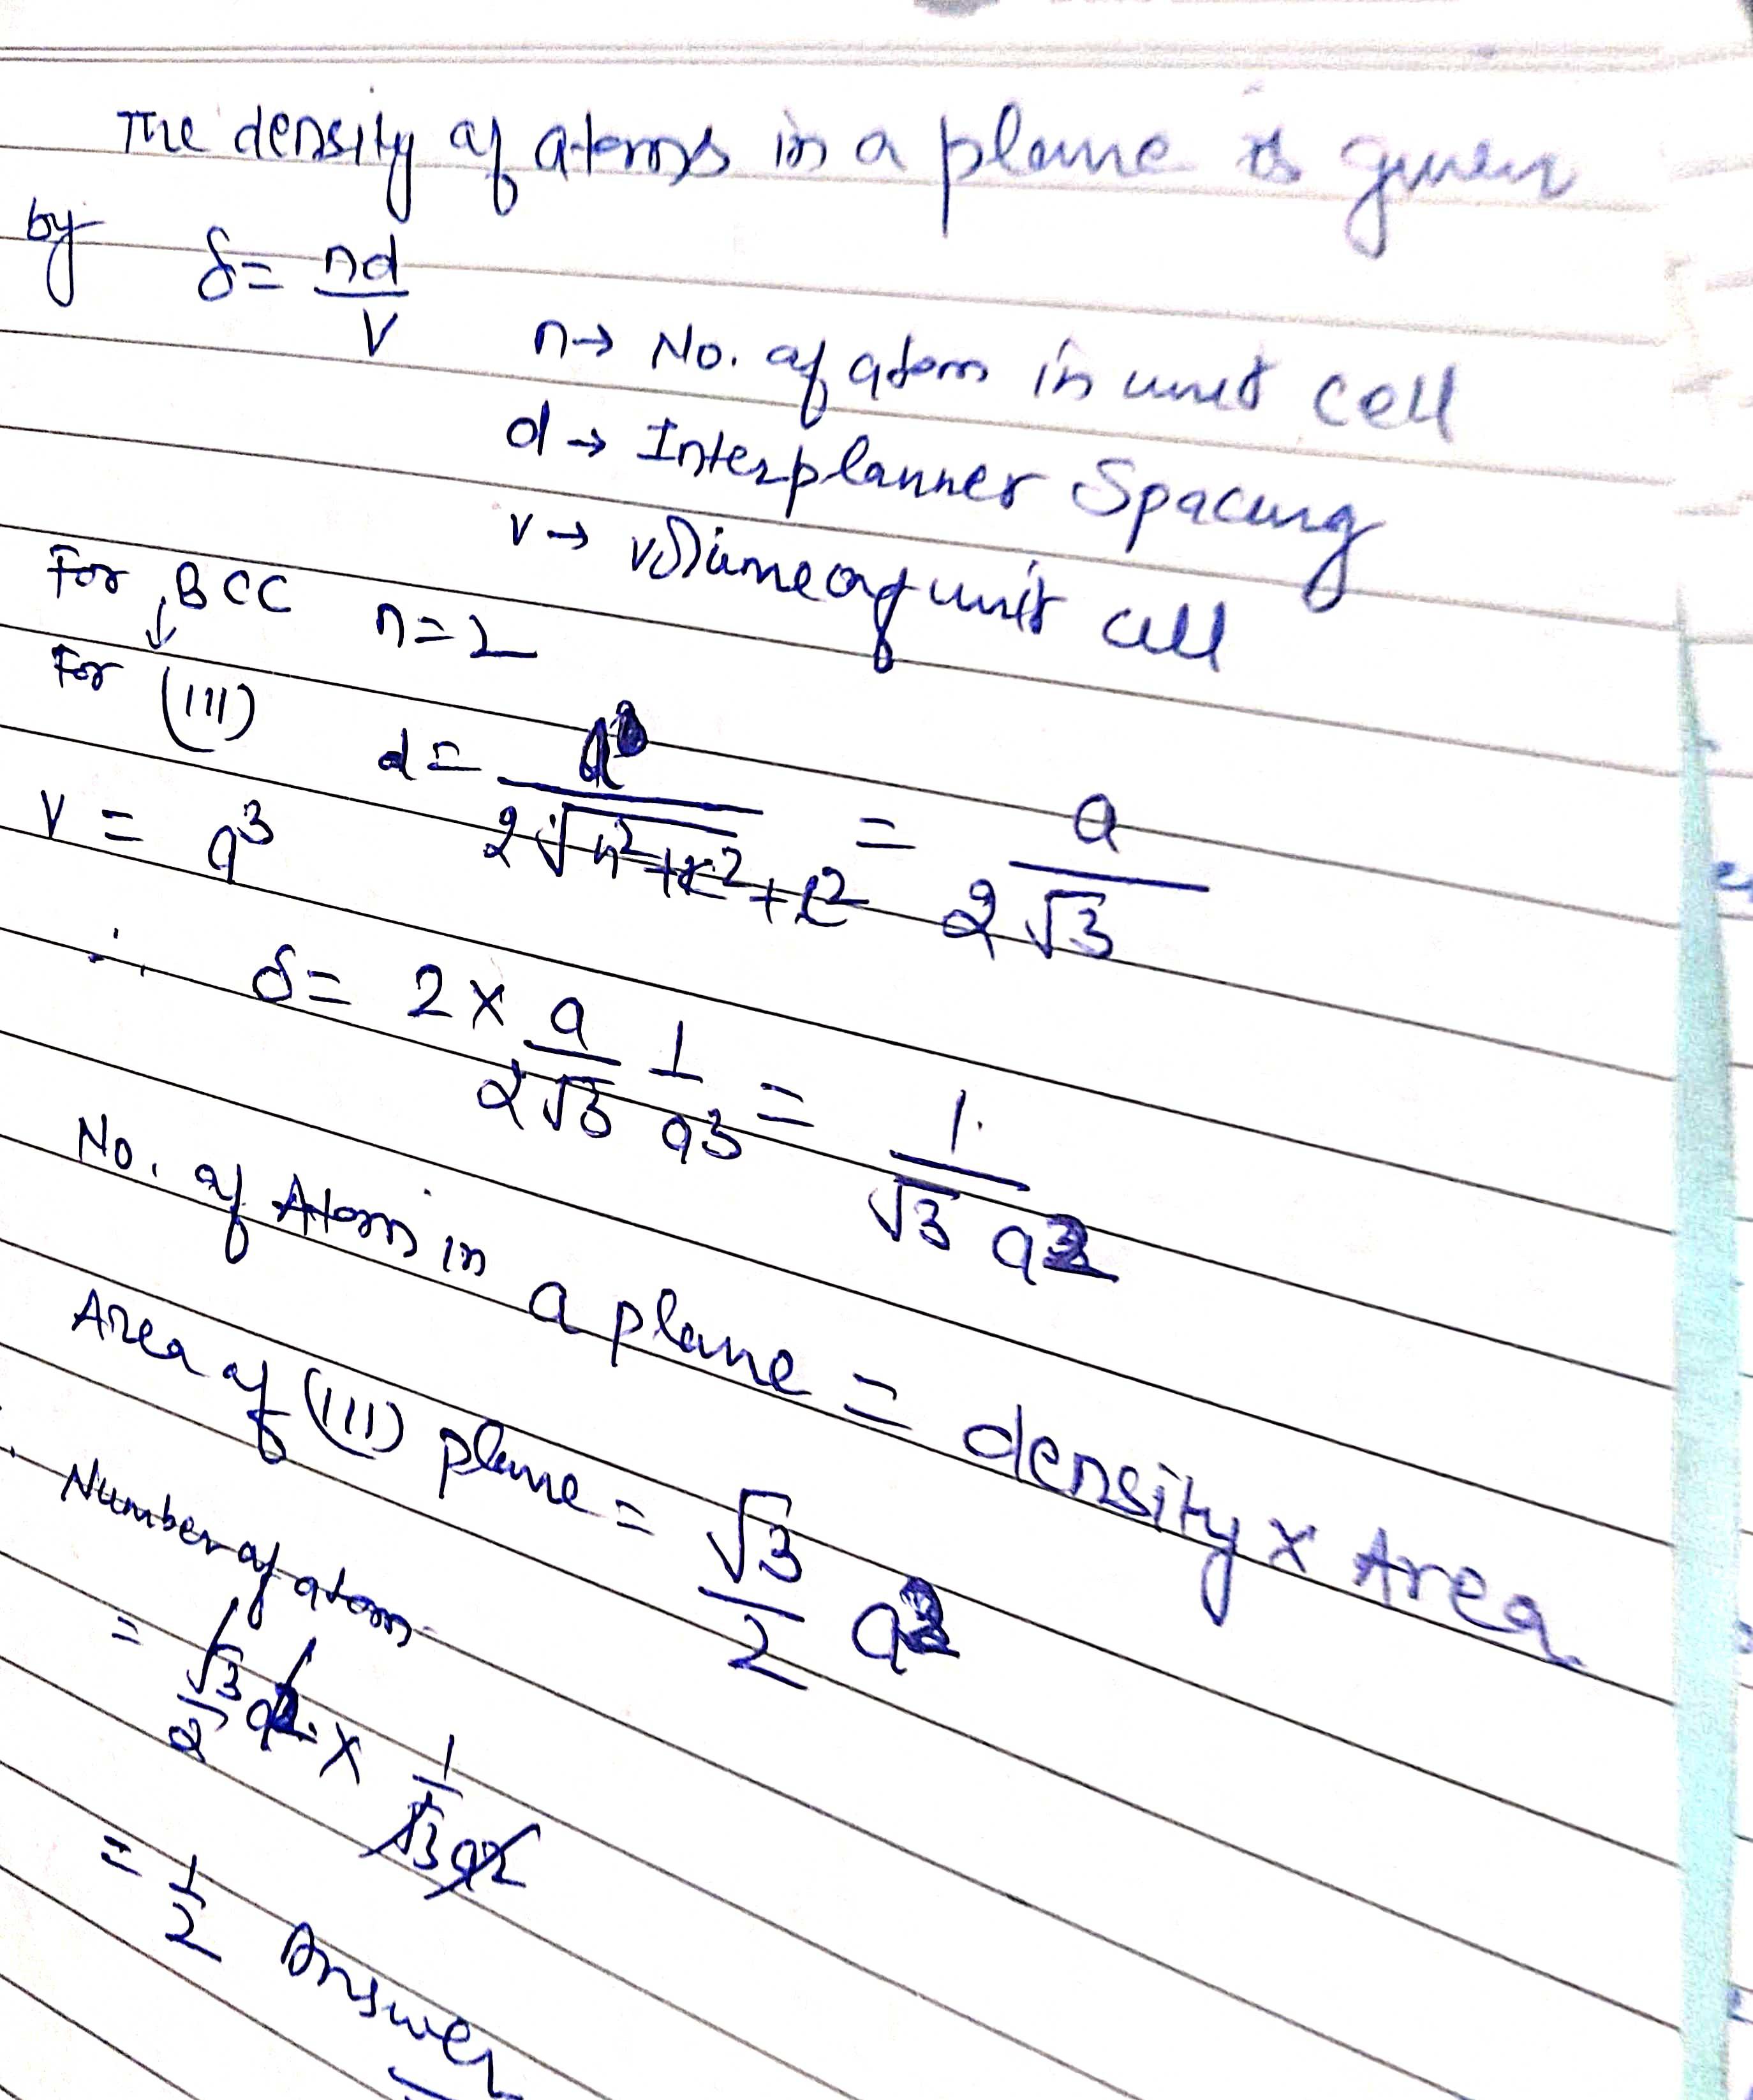 The density of atoms in a plane is given
by δ = nd/V
n → No. of atom in unit cell
d → Interplanner Spacing
v → volume of unit cell
For BCC n = 2
↓
For (111) d = a/2√h²+k²+l² = a/2√3
V = a³
∴ δ = 2 × a/2√3 1/a³ = 1/√3 a2
No. of Atom in a plane = density × Area
Area of (111) plane = √3/2 a2
Number of atom
= √3/2 a2 × 1/√3 a2
= 1/2 Answer